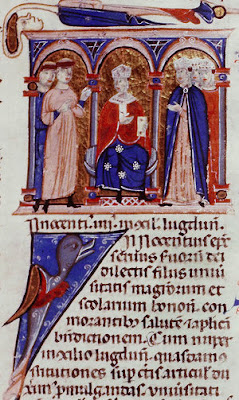 Innocentius iiii. in xıl. lugdun̄.
Innocentius ep̄s
seruus seruoꝝ dei
dilectis filiis uniu
sitatis magistroꝝ et
scolarium bonon̄. com
morantibꝫ salutē ⁊ apl'icā
bn̄dictionem. Cum nuper
in ꝯcilio lugdun̄. quasdam ꝯ
stitutiones sup certis articul'
duxim' pmulgandas uniuersitati